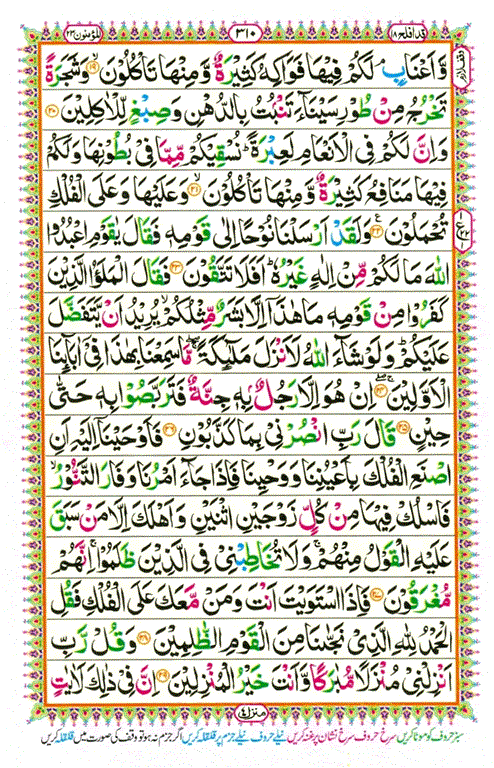 قد افلح ۱۸
۳۱۰
المؤمنون ۲۳
وَّاَعْنَابٍ ۘ لَكُمْ فِيْهَا فَوَاكِهُ كَثِيْرَةٌ وَّمِنْهَا تَاْكُلُوْنَ ۙ‏﴿۱۹﴾ وَشَجَرَةً
تَخْرُجُ مِنْ طُوْرِ سَيْنَآءَ تَنْۢبُتُ بِالدُّهْنِ وَصِبْغٍ لِّلْاٰكِلِيْنَ ﴿۲۰﴾
وَاِنَّ لَكُمْ فِى الْاَنْعَامِ لَعِبْرَةً ؕ نُسْقِيْكُمْ مِّمَّا فِىْ بُطُوْنِهَا وَلَكُمْ
فِيْهَا مَنَافِعُ كَثِيْرَةٌ وَّمِنْهَا تَاْكُلُوْنَ ۙ ﴿۲۱﴾ وَعَلَيْهَا وَعَلَى الْفُلْكِ
تُحْمَلُوْنَ ﴿۲۲﴾ وَلَقَدْ اَرْسَلْنَا نُوْحًا اِلٰى قَوْمِهٖ فَقَالَ يٰقَوْمِ اعْبُدُوا
اللّٰهَ مَا لَكُمْ مِّنْ اِلٰهٍ غَيْرُهٗ ؕ اَفَلَا تَتَّقُوْنَ ﴿۲۳﴾ فَقَالَ الْمَلَؤُا الَّذِيْنَ
كَفَرُوْا مِنْ قَوْمِهٖ مَا هٰذَاۤ اِلَّا بَشَرٌ مِّثْلُكُمْ ۙ يُرِيْدُ اَنْ يَّتَفَضَّلَ
عَلَيْكُمْ ؕ وَلَوْ شَآءَ اللّٰهُ لَاَنْزَلَ مَلٰٓئِكَةً ۖۚ مَّا سَمِعْنَا بِهٰذَا فِىْۤ اٰبَآئِنَا
الْاَوَّلِيْنَ ۚ ﴿۲۴﴾ اِنْ هُوَ اِلَّا رَجُلٌۢ بِهٖ جِنَّةٌ فَتَرَبَّصُوْا بِهٖ حَتّٰى
حِيْنٍ ﴿۲۵﴾ قَالَ رَبِّ انْصُرْنِىْ بِمَا كَذَّبُوْنِ ﴿۲۶﴾ فَاَوْحَيْنَاۤ اِلَيْهِ اَنِ
اصْنَعِ الْفُلْكَ بِاَعْيُنِنَا وَوَحْيِنَا فَاِذَا جَآءَ اَمْرُنَا وَفَارَ التَّنُّوْرُ ۙ
فَاسْلُكْ فِيْهَا مِنْ كُلٍّ زَوْجَيْنِ اثْنَيْنِ وَاَهْلَكَ اِلَّا مَنْ سَبَقَ
عَلَيْهِ الْقَوْلُ مِنْهُمْ ۚ وَلَا تُخَاطِبْنِىْ فِى الَّذِيْنَ ظَلَمُوْا ۚ اِنَّهُمْ
مُّغْرَقُوْنَ ﴿۲۷﴾ فَاِذَا اسْتَوَيْتَ اَنْتَ وَمَنْ مَّعَكَ عَلَى الْفُلْكِ فَقُلِ
الْحَمْدُ لِلّٰهِ الَّذِىْ نَجّٰىنَا مِنَ الْقَوْمِ الظّٰلِمِيْنَ ﴿۲۸﴾ وَقُلْ رَّبِّ
اَنْزِلْنِىْ مُنْزَلًا مُّبٰرَكًا وَّاَنْتَ خَيْرُ الْمُنْزِلِيْنَ ﴿۲۹﴾ اِنَّ فِىْ ذٰلِكَ لَاٰيٰتٍ
منزل ۴
سبز حروف کو موٹا کریں سرخ حروف سرخ نشان پر غنہ کریں نیلے حروف نیلے جزم پر قلقلہ کریں اگر جزم نہ ہو تو وقف کی صورت میں قلقلہ کریں